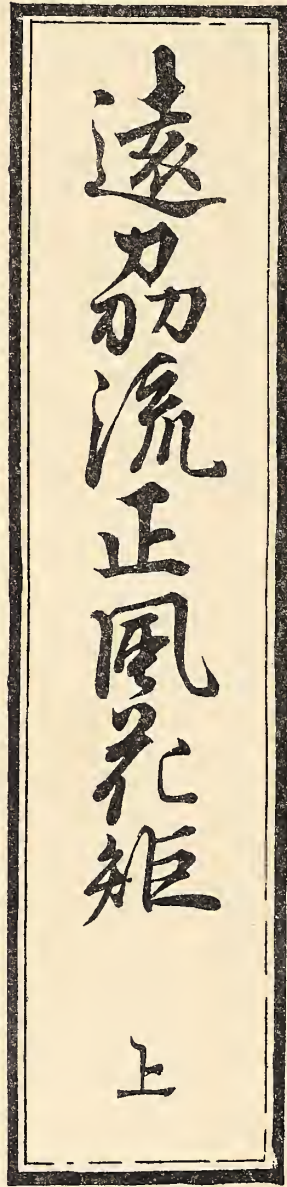 遠刕流正風花矩 上